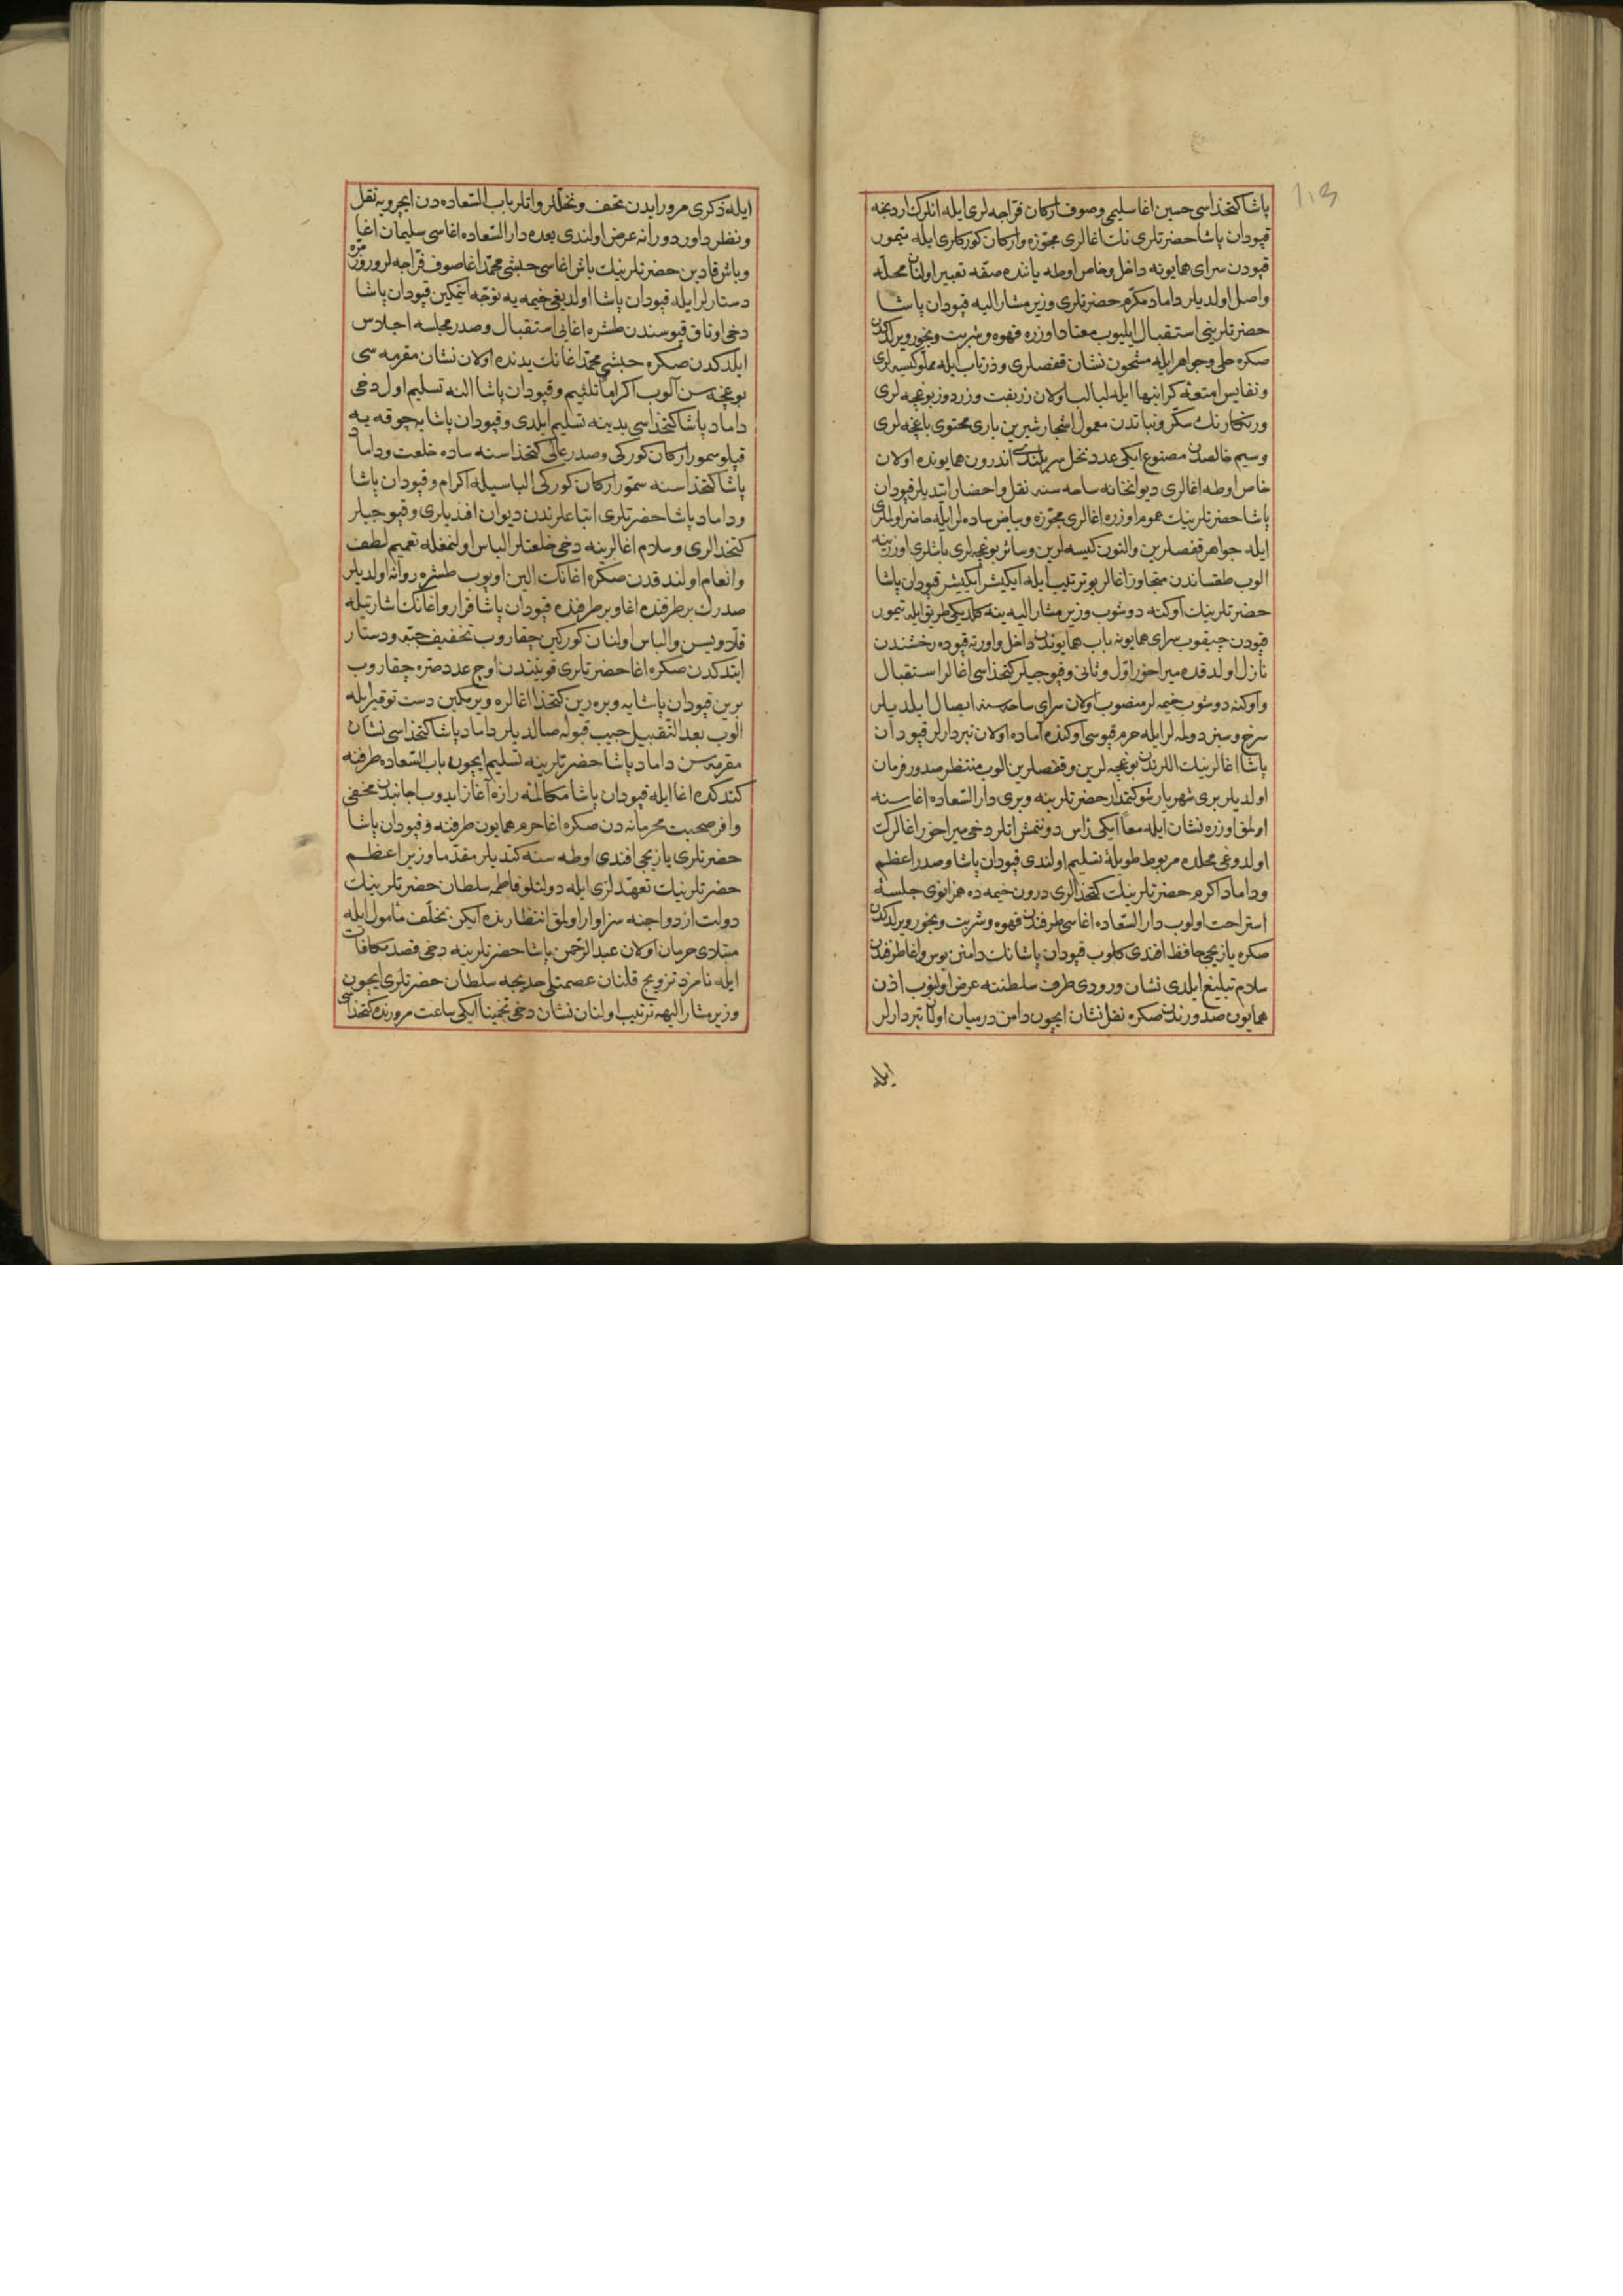 پاشا کتخذاسی حسین اغا سلیمی و صوف ارکان قراجه لری ایله انلرک اردنجه
قپودان پاشا حضرتلری نك اغالری مجوّزه و ارکان کورکلری ایله تیمور
قپودن سرای همایونه داخل و خاص اوطه یاننده صفّه تعبیر اولنان محلّه
واصل اولدیلر داماد مکرّم حضرتلری وزیر مشار الیه قپودان پاشا
حضرتلرینی استقبال ایلیوب معتاد اوزره قهوه و شربت و بخور ویرلدکدن
صکره حلی و جواهر ایله مشحون نشان قفصلری و زرناب ایله مملو کیسه لری
و نفایس امتعهٔ کرانبها ایله لبالب اولان زربفت و زردوز بوغچه لری
و رنکارنك سکّر و نباتدن معمول اشجار شیرین باری محتوی باغچه لری
و سیم خالصدن مصنوع ایکی عدد نخل سربلندی اندرون همایونده اولان
خاص اوطه اغالری دیوانخانه ساحه سنه نقل و احضار ایتدیلر قپودان
پاشا حضرتلرینك عموم اوزره اغالری مجوّزه و بیاض ساده لر ایله حاضر اولملری
ایله جواهر قفصلرین و التون کیسه لرین و سائر بوغچه لری باشلری اوزرینه
الوب طقساندن متجاوز اغالر بو ترتیب ایله ایکیشر ایکیشر قپودان پاشا
حضرتلرینك اوکنه دوشوب وزیر مشار الیه ینه کلدیکی طریق ایله تیمور
قپودن چیقوب سرای همایونه باب همایوندن داخل و اورته قپوده رخشندن
نازل اولدقده میراخور اوّل و ثانی و قپوجیلر کتخذاسی اغالر استقبال
و اوکنه دوشوب خیمه لر منصوب اولان سرای ساحه سنه ایصال ایلدیلر
سرخ و سبز دولمه لر ایله حرم قپوسی اوکنده آماده اولان تبردارلر قپودان
پاشا اغالرینك اللرندن بوغچه لرین و قفصلرین الوب منتظر صدور فرمان
اولدیلر بری شهریار شوکتمدار حضرتلرینه و بری دار السّعاده اغاسنه
اولمق اوزره نشان ایله معًا ایکی رأس دونتمش اتلر دخی میراخور اغالرك
اولدوغی محلده مربوط طویلهٔ تسلیم اولندی قپودان پاشا و صدر اعظم
و داماد اکرم حضرتلرینك کتخذالری درون خیمه ده همزانوی جلسهٔ
استراحت اولوب دار السّعاده اغاسی طرفندن قهوه و شربت و بخور ویرلدکدن
صکره یازیجی حافظ افندی کلوب قپودان پاشانك دامنن بوس و اغا طرفندن
سلام تبلیغ ایلدی نشان ورودی طرف سلطنته عرض اولنوب اذن
همایون صدورندن صکره نقل نشان ایچون دامن درمیان اولان تبردارلر
ایله
ایله ذکری مرور ایدن تحف و نخللر و اتلر باب السّعاده دن ایچرویه نقل
و نظر داور دورانه عرض اولندی بعده دار السّعاده اغاسی سلیمان اغا
و باش قادین حضرتلرینك باش اغاسی حبشی محمّد اغا صوف قراجه لر و روزمرّه
دستارلر ایله قپودان پاشا اولدیغی خیمه یه توجّه ایتمکین قپودان پاشا
دخی اوتاق قپوسندن طشره اغایی استقبال و صدر مجلسه اجلاس
ایلدکدن صکره حبشی محمّد اغانك یدنده اولان نشان مقرمه سی
بوغچه سن آلوب اکرامًا تلثیم و قپودان پاشا النه تسلیم اول دخی
داماد پاشا کتخذاسی یدینه تسلیم ایلدی و قپودان پاشایه چوقه یه
قپلو سمور ارکان کورکی و صدر عالی کتخذاسنه ساده خلعت و داماد
پاشا کتخذاسنه سمّور ارکان کورکی الباسیله اکرام و قپودان پاشا
و داماد پاشا حضرتلری اتباعلرندن دیوان افندیلری و قپوجیلر
کتخذالری و سلام اغالرینه دخی خلعتلر الباس اولنمغله تعمیم لطف
و انعام اولندقدن صکره اغانك الین اوپوب طشره روانه اولدیلر
صدرك بر طرفنده اغا و بر طرفنده قپودان پاشا قرار و اغانك اشارتیله
قلاویسن و الباس اولنان کورکین چقاروب تخفیف جبّه و دستار
ایتدکدن صکره اغا حضرتلری قوینندن اوچ عدد صرّه چقاروب
برین قپودان پاشایه و برەرین کتخذا اغالره ویرمکین دست توقیر ایله
الوب بعد التّقبیل جیب قبوله صالدیلر داماد پاشا کتخذاسی نشان
مقرمه سن داماد پاشا حضرتلرینه تسلیم ایچون باب السّعاده طرفنه
کتدکده اغا ایله قپودان پاشا مکالمهٔ رازه آغاز ایدوب جانبدن مخفی
وافر صحبت محرمانه دن صکره اغا حرم همایون طرفنه و قپودان پاشا
حضرتلری یازیجی افندی اوطه سنه کتدیلر مقدّما وزیر اعظم
حضرتلرینك تعهّدلری ایله دولتلو فاطمه سلطان حضرتلرینك
دولت ازدواجنه سزاوار اولمق انتظارنده ایکن تخلّف مأمول ایله
مبتلای حرمان اولان عبد الرّحمن پاشا حضرتلرینه دخی قصد مکافات
ایله نامزد تزویج قلنان عصمتلی خدیجه سلطان حضرتلری ایچون
وزیر مشار الیهه ترتیب اولنان نشان دخی تخمینًا ایکی ساعت مرورنده کتخذاسی